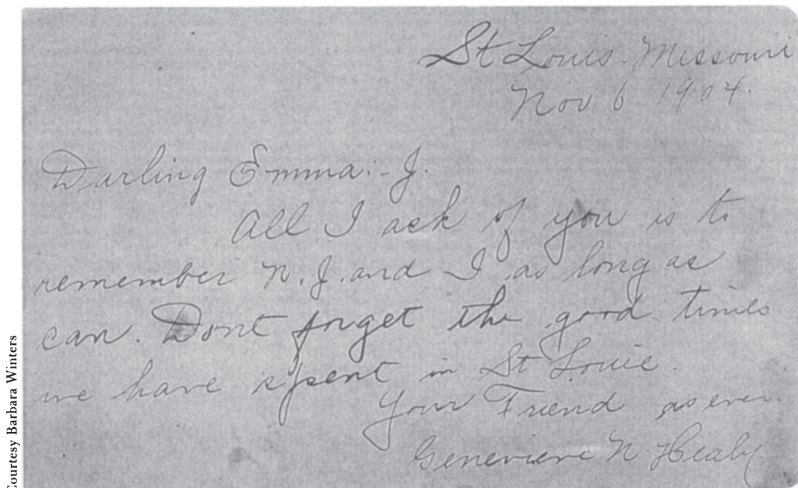 St Louis. Missouri
Nov 6 1904.
Darling Emma:-J.
All I ask of you is to
remember N.J. and I as long as
can. Dont forget the good times
we have spent in St Louie.
Your Friend as ever
Genevieve N Healy
Courtesy Barbara Winters